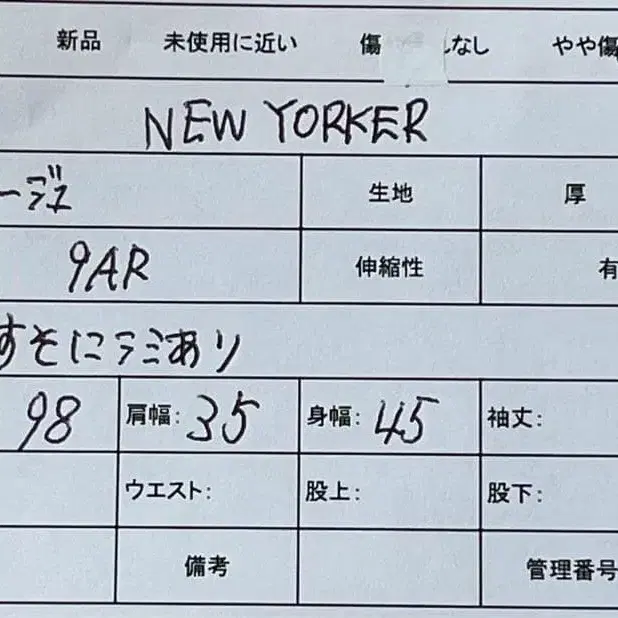 新品 未使用に近い 傷 れなし やや傷
NEW YORKER
ージュ 生地 厚
9AR 伸縮性 有
すそにシミあり
98 肩幅: 35 身幅: 45 袖丈:
ウエスト: 股上: 股下:
備考 管理番号